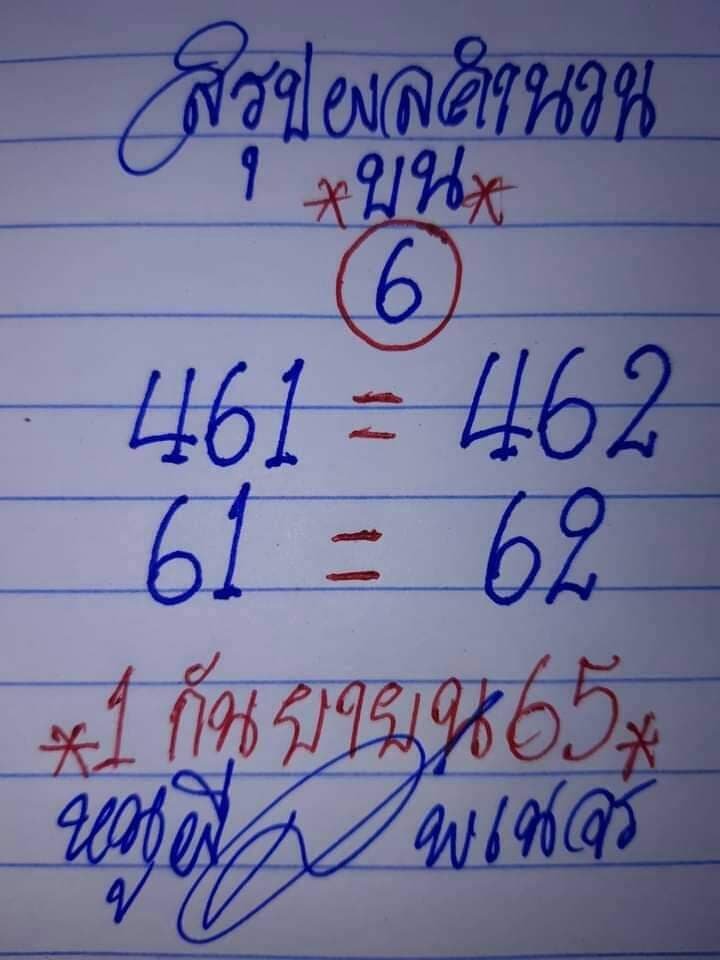 สรุปผลคำนวน
*บน*
6
461 = 462
61 = 62
*1 กันยายน 65*
หมูผี พเนจร